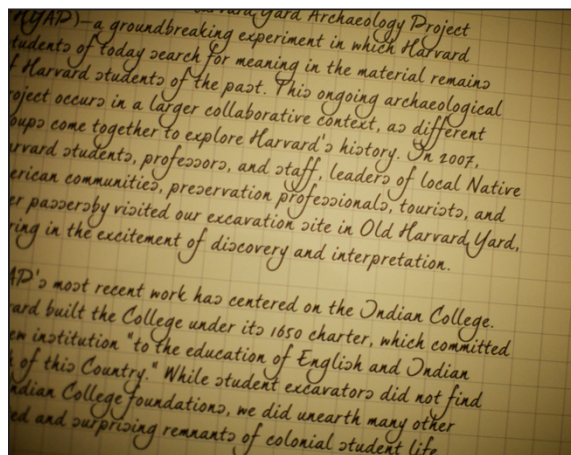 Yard Archaeology Project
(HYAP)—a groundbreaking experiment in which Harvard
students of today search for meaning in the material remains
f Harvard students of the past. This ongoing archaeological
roject occurs in a larger collaborative context, as different
oups come together to explore Harvard's history. In 2007,
arvard students, professors, and staff, leaders of local Native
erican communities, preservation professionals, tourists, and
er passersby visited our excavation site in Old Harvard Yard,
ring in the excitement of discovery and interpretation.
AP's most recent work has centered on the Indian College.
ard built the College under its 1650 charter, which committed
ew institution "to the education of English and Indian
of this Country." While student excavators did not find
ndian College foundations, we did unearth many other
ed and surprising remnants of colonial student life